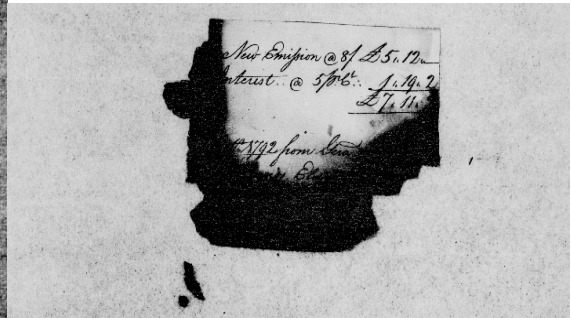 New Emission @ 8/ £5.. 12..
Interest.. @ 5 pr Ct.. 1.. 19.. 2
£7.. 11..
1792 from